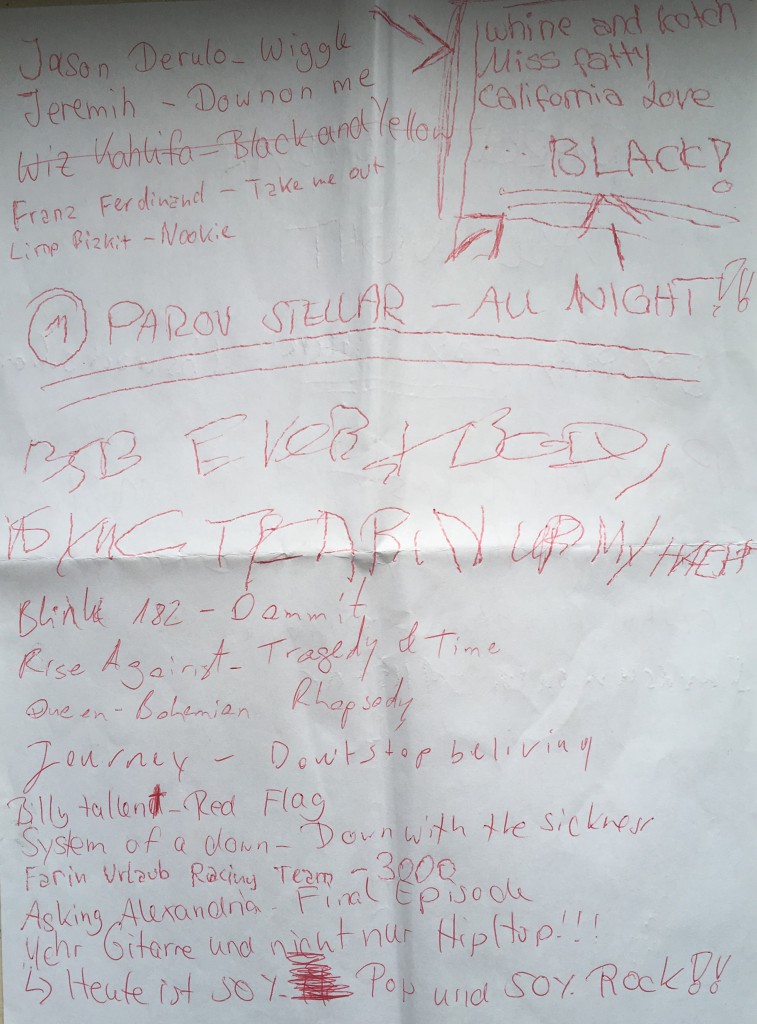 Jason Derulo - Wiggle
Jeremih - Down on me
Wiz Kahlifa - Black and Yellow
Franz Ferdinand - Take me out
Limp Bizkit - Nookie
Whine and Kotch
Miss fatty
California Love
... BLACK!
11 PAROV STELLAR - ALL NIGHT!!!
BSB EVERYBODY,
TEARIN UP MY HAERT
Blink 182 - Dammit
Rise Against - Tragedy & Time
Queen - Bohemian Rhapsody
Journey - Don't stop beliving
Billy tallent - Red Flag
System of a down - Down with the sickness
Farin Urlaub Racing Team - 3000
Asking Alexandria - Final Episode
Mehr Gitarre und nicht nur Hip/Hop!!!
↳ Heute ist 50% Pop und 50% Rock!!!